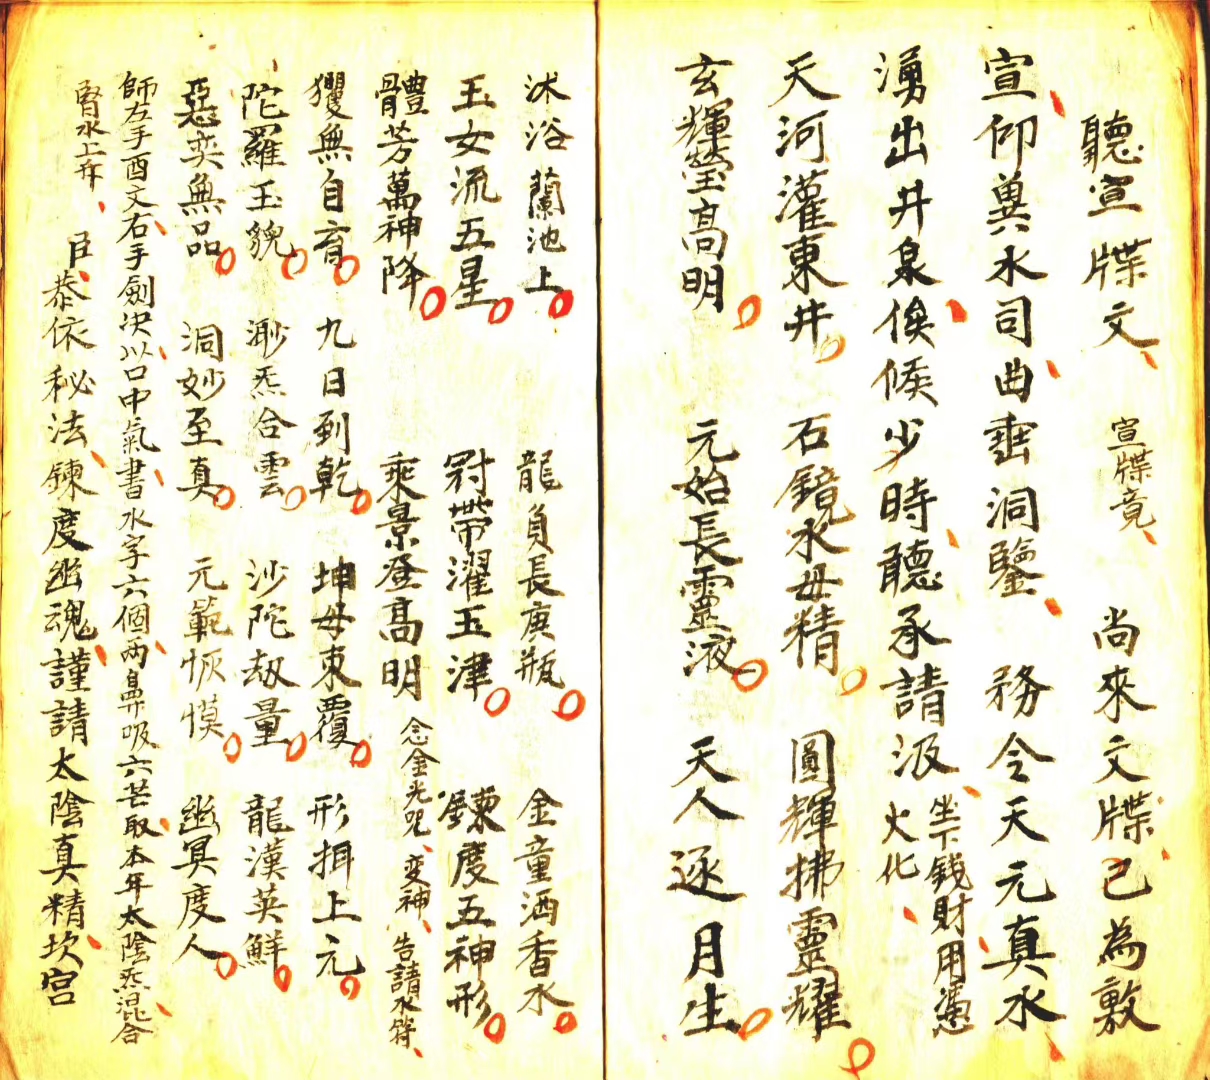 聽宣牒文 宣牒竟 尚來文牒已為敷
宣仰兾水司曲垂洞鑒 務令天元真水
湧出井泉俟候少時聽承請汲 坐下錢財用憑火化
天河灌東井 石鏡水母精 圓輝拂靈耀
玄輝瑩高明 元始長靈液 天人逐月生
沭浴蘭池上 龍負長庚瓶 金童洒香水
玉女流五星 冠帶濯玉津 鍊度五神形
體芳萬神降 乘景登高明 念金光咒、変神、告請水符、
玃無自育 九日到乾 坤母東覆 形揖上元
陀羅玉貌 渺炁合雲 沙陀劫量 龍漢英鮮
惡奕無品 洞妙至真 元範恢漠 幽冥度人
師左手酉文右手劍决以口中氣書水字六個两鼻吸六芒取本年太陰炁混合
腎水上升、
臣恭依秘法鍊度幽魂謹請太陰真精坎宫